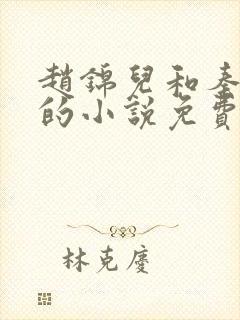 趙錦兒和秦
的小說免費
林克慶